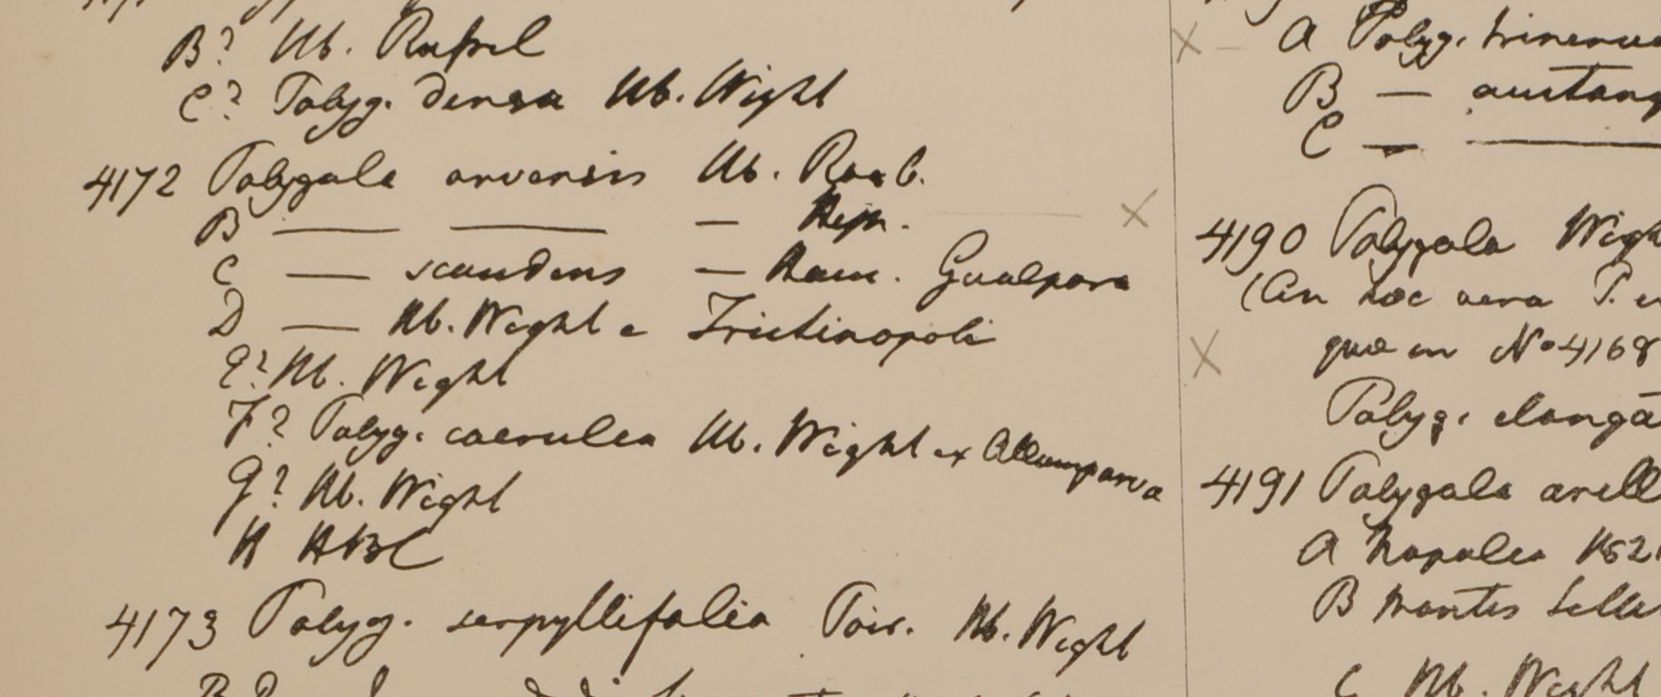 B? Hb. Russel
C? Polyg. densa Hb. Wight
4172 Polygala arvensis Hb. Roxb.
B — — — Heyn.
C — scandens — Ham. Gualpara
D — Hb. Wight e Trichinopoli
E? Hb. Wight
F? Polyg. caerulea Hb. Wight ex
G? Hb. Wight
H HBC
4173 Polyg. serpyllifolia Poir. Hb. Wight
A Polyg.
B —
C — —
4190 Polygala
(An hoc vera P.
quae in No 4168
Polyg.
4191 Polygala
A Napalia
B Montes
C Hb. Wight